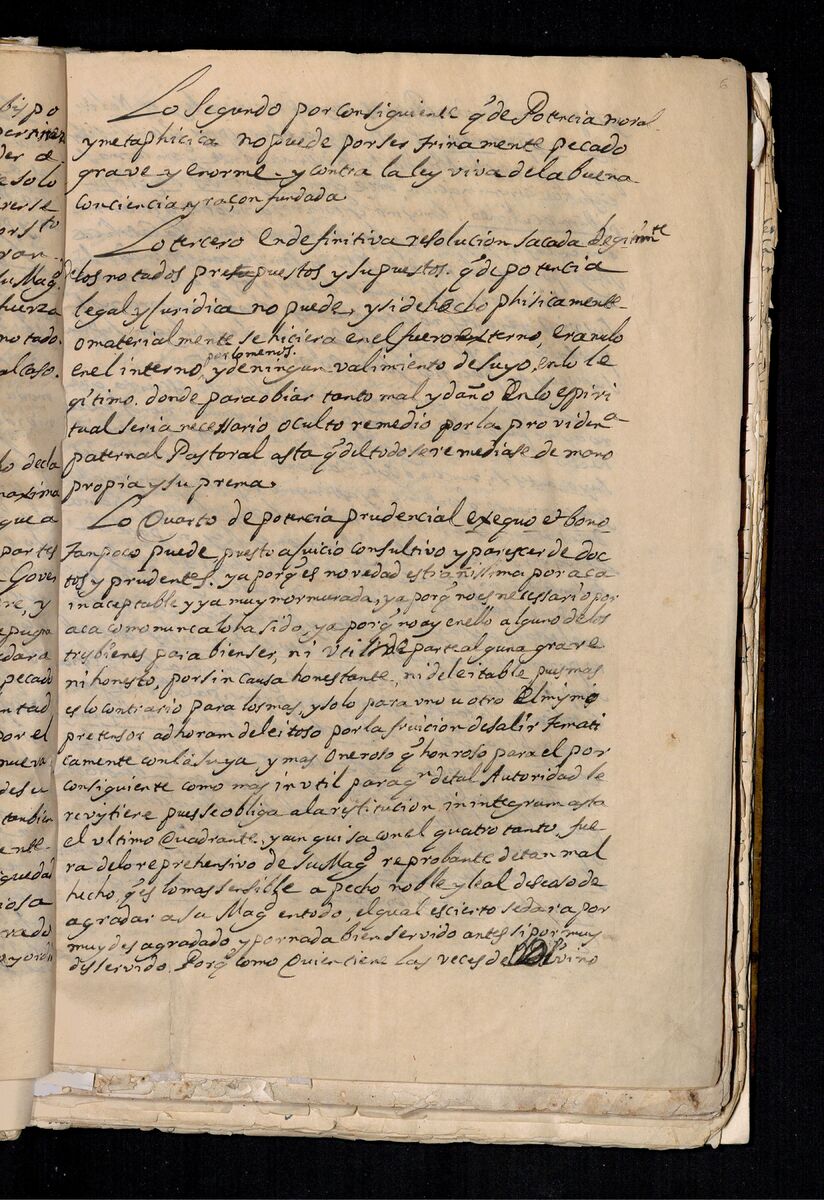 6
Lo Segundo por consiguiente q̃ de Potencia moral
y metaphicica no puede por ser trinamente pecado
grave y enorme. y contra la ley viva de la buena
conciencia y raçon fundada
Lo tercero en definitiva resolucion sacada
de los notados presupuestos y supuestos. q̃ de potencia
legal y Juridica no puede, y si de hecho phisicamente
o materialmente se hiciera en el fuero externo, era nulo
en el interno, por lo menos. y de ningun valimiento de suyo, en lo le
gitimo. donde para obiar tanto mal y daño en lo espiri
tual seria necessario oculto remedio por la providen^a
paternal Pastoral asta q̃ del todo se remediase de mano
propia y suprema.
Lo Quarto de potencia prudencial ex equo et bono
Tampoco puede puesto a juicio consultivo y parescer de doc
tos y prudentes. ya porq̃ es novedad estrañissima por aca
inaceptable y ya muy mormurada, ya porq̃ no es necessario por
aca como nunca lo ha sido, ya porq̃ no ay en ello alguno de los
tres bienes para bien ser, ni util de parte alguna grave
ni honesto, por sin causa honestante, ni deleitable pues mas
es lo contrario para los mas, y solo para uno u otro El mismo
pretensor ad horam deleitoso por la fruicion de salir temati
camente con la suya, y mas oneroso q̃ honroso para el por
consiguiente como mas inutil para q^n de tal Autoridad se
revistiere pues se obliga a la restitucion in integrum asta
el ultimo Quadrante, y aun quisa con el quatro tanto, fue
ra de lo reprehensivo de su Mag^d reprobante de tan mal
hecho q̃ es lo mas sensille a pecho noble y leal deseoso de
agradar a Su Mag^d en todo, el qual es cierto se dara por
muy desagradado y por nada bien servido antes si por muy
disservido. Porq̃ como Quien tiene las veces de